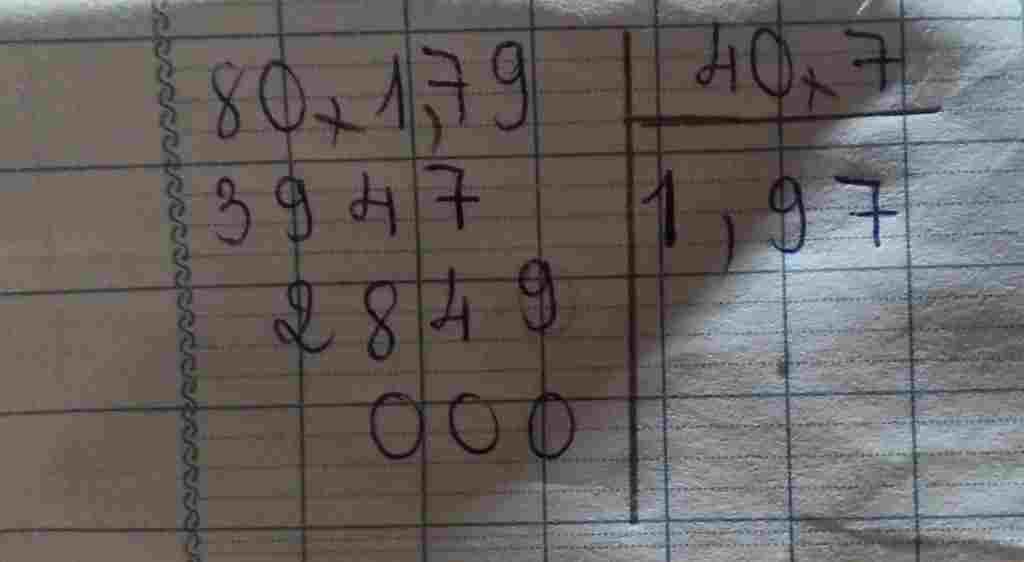 80,1,79 40,7
3947 1,97
2849
000